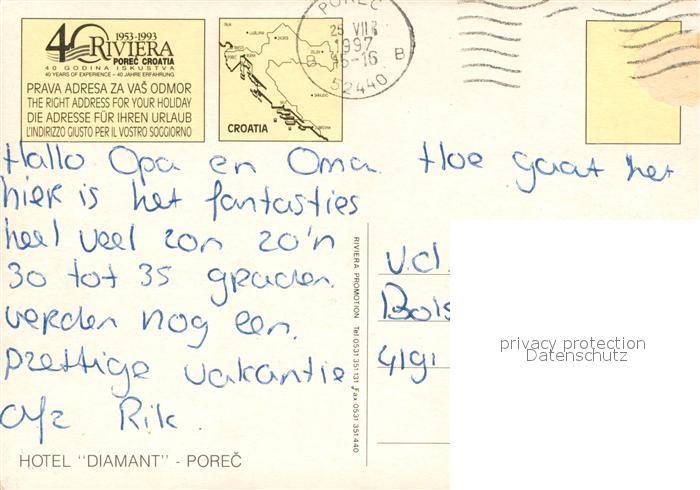 1953-1993
40 RIVIERA
POREČ CROATIA
40 GODINA ISKUSTVA
40 YEARS OF EXPERIENCE – 40 JAHRE ERFAHRUNG
PRAVA ADRESA ZA VAŠ ODMOR
THE RIGHT ADDRESS FOR YOUR HOLIDAY
DIE ADRESSE FÜR IHREN URLAUB
L'INDIRIZZO GIUSTO PER IL VOSTRO SOGGIORNO
CROATIA
POREČ
25 VII
1997
B 15-16 B
52440
Hallo Opa en Oma. Hoe gaat het
hier is het fantasties
heel veel zon zo'n
30 tot 35 graden.
verder nog een.
prettige vakantie.
Afz Rik.
RIVIERA PROMOTION Tel 0531 351 131, Fax 0531 351 440
v.d.
Bols
4191
privacy protection
Datenschutz
HOTEL "DIAMANT" - POREČ